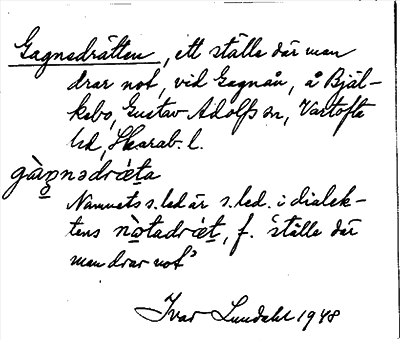 Gagnsdrätten, ett ställe där man
drar not, vid Gagnån, å Bjäl-
kebo, Gustav Adolfs sn, Vartofta
hd, Skarab. l.
gàŋnədrǽta
Namnets s.led är s.led. i dialek-
tens nòtadrǽt, f. 'ställe där
man drar not'
Ivar Lundahl 1948